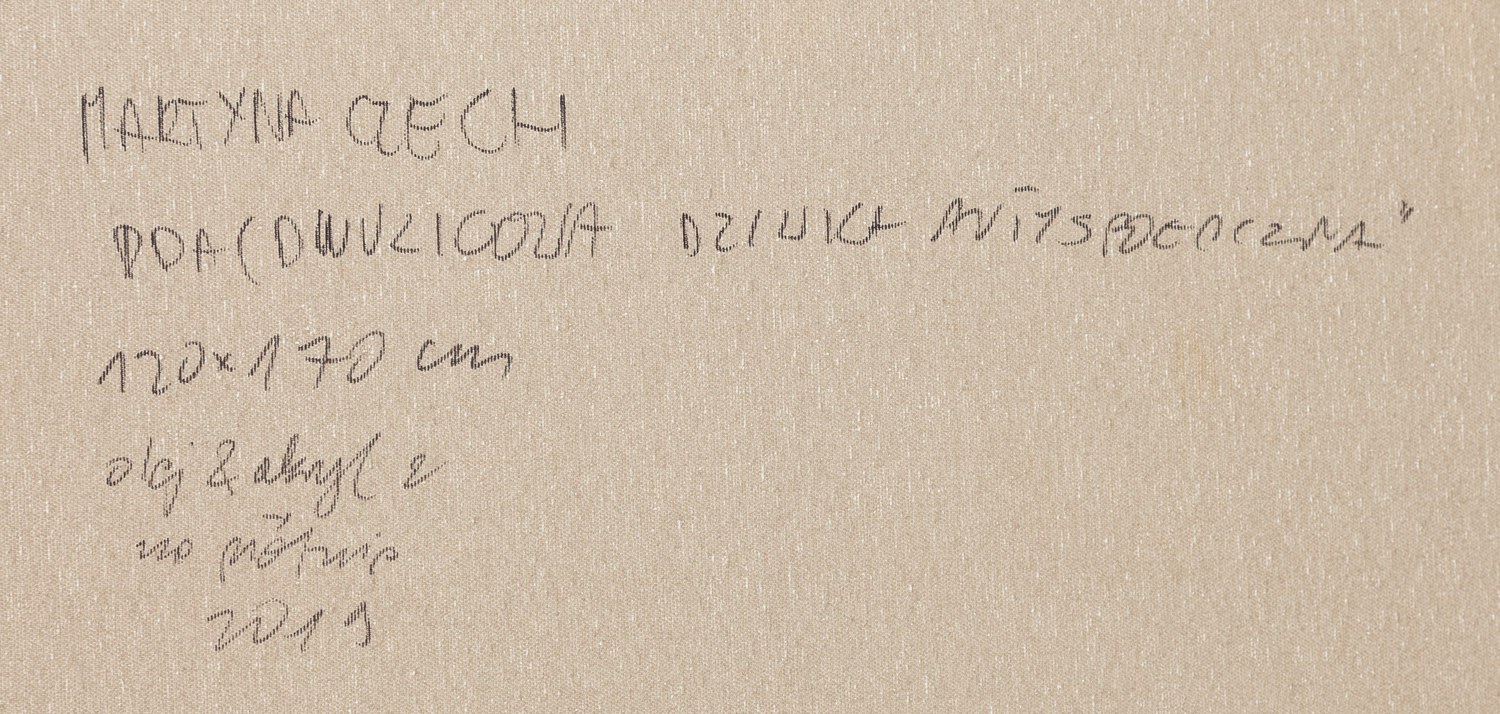 MARTYNA CZECH
DDA (DWULICOWA DZIWKA ANTYSPOŁECZNA"
120x170 cm
olej & akryl
na płótnie
2019